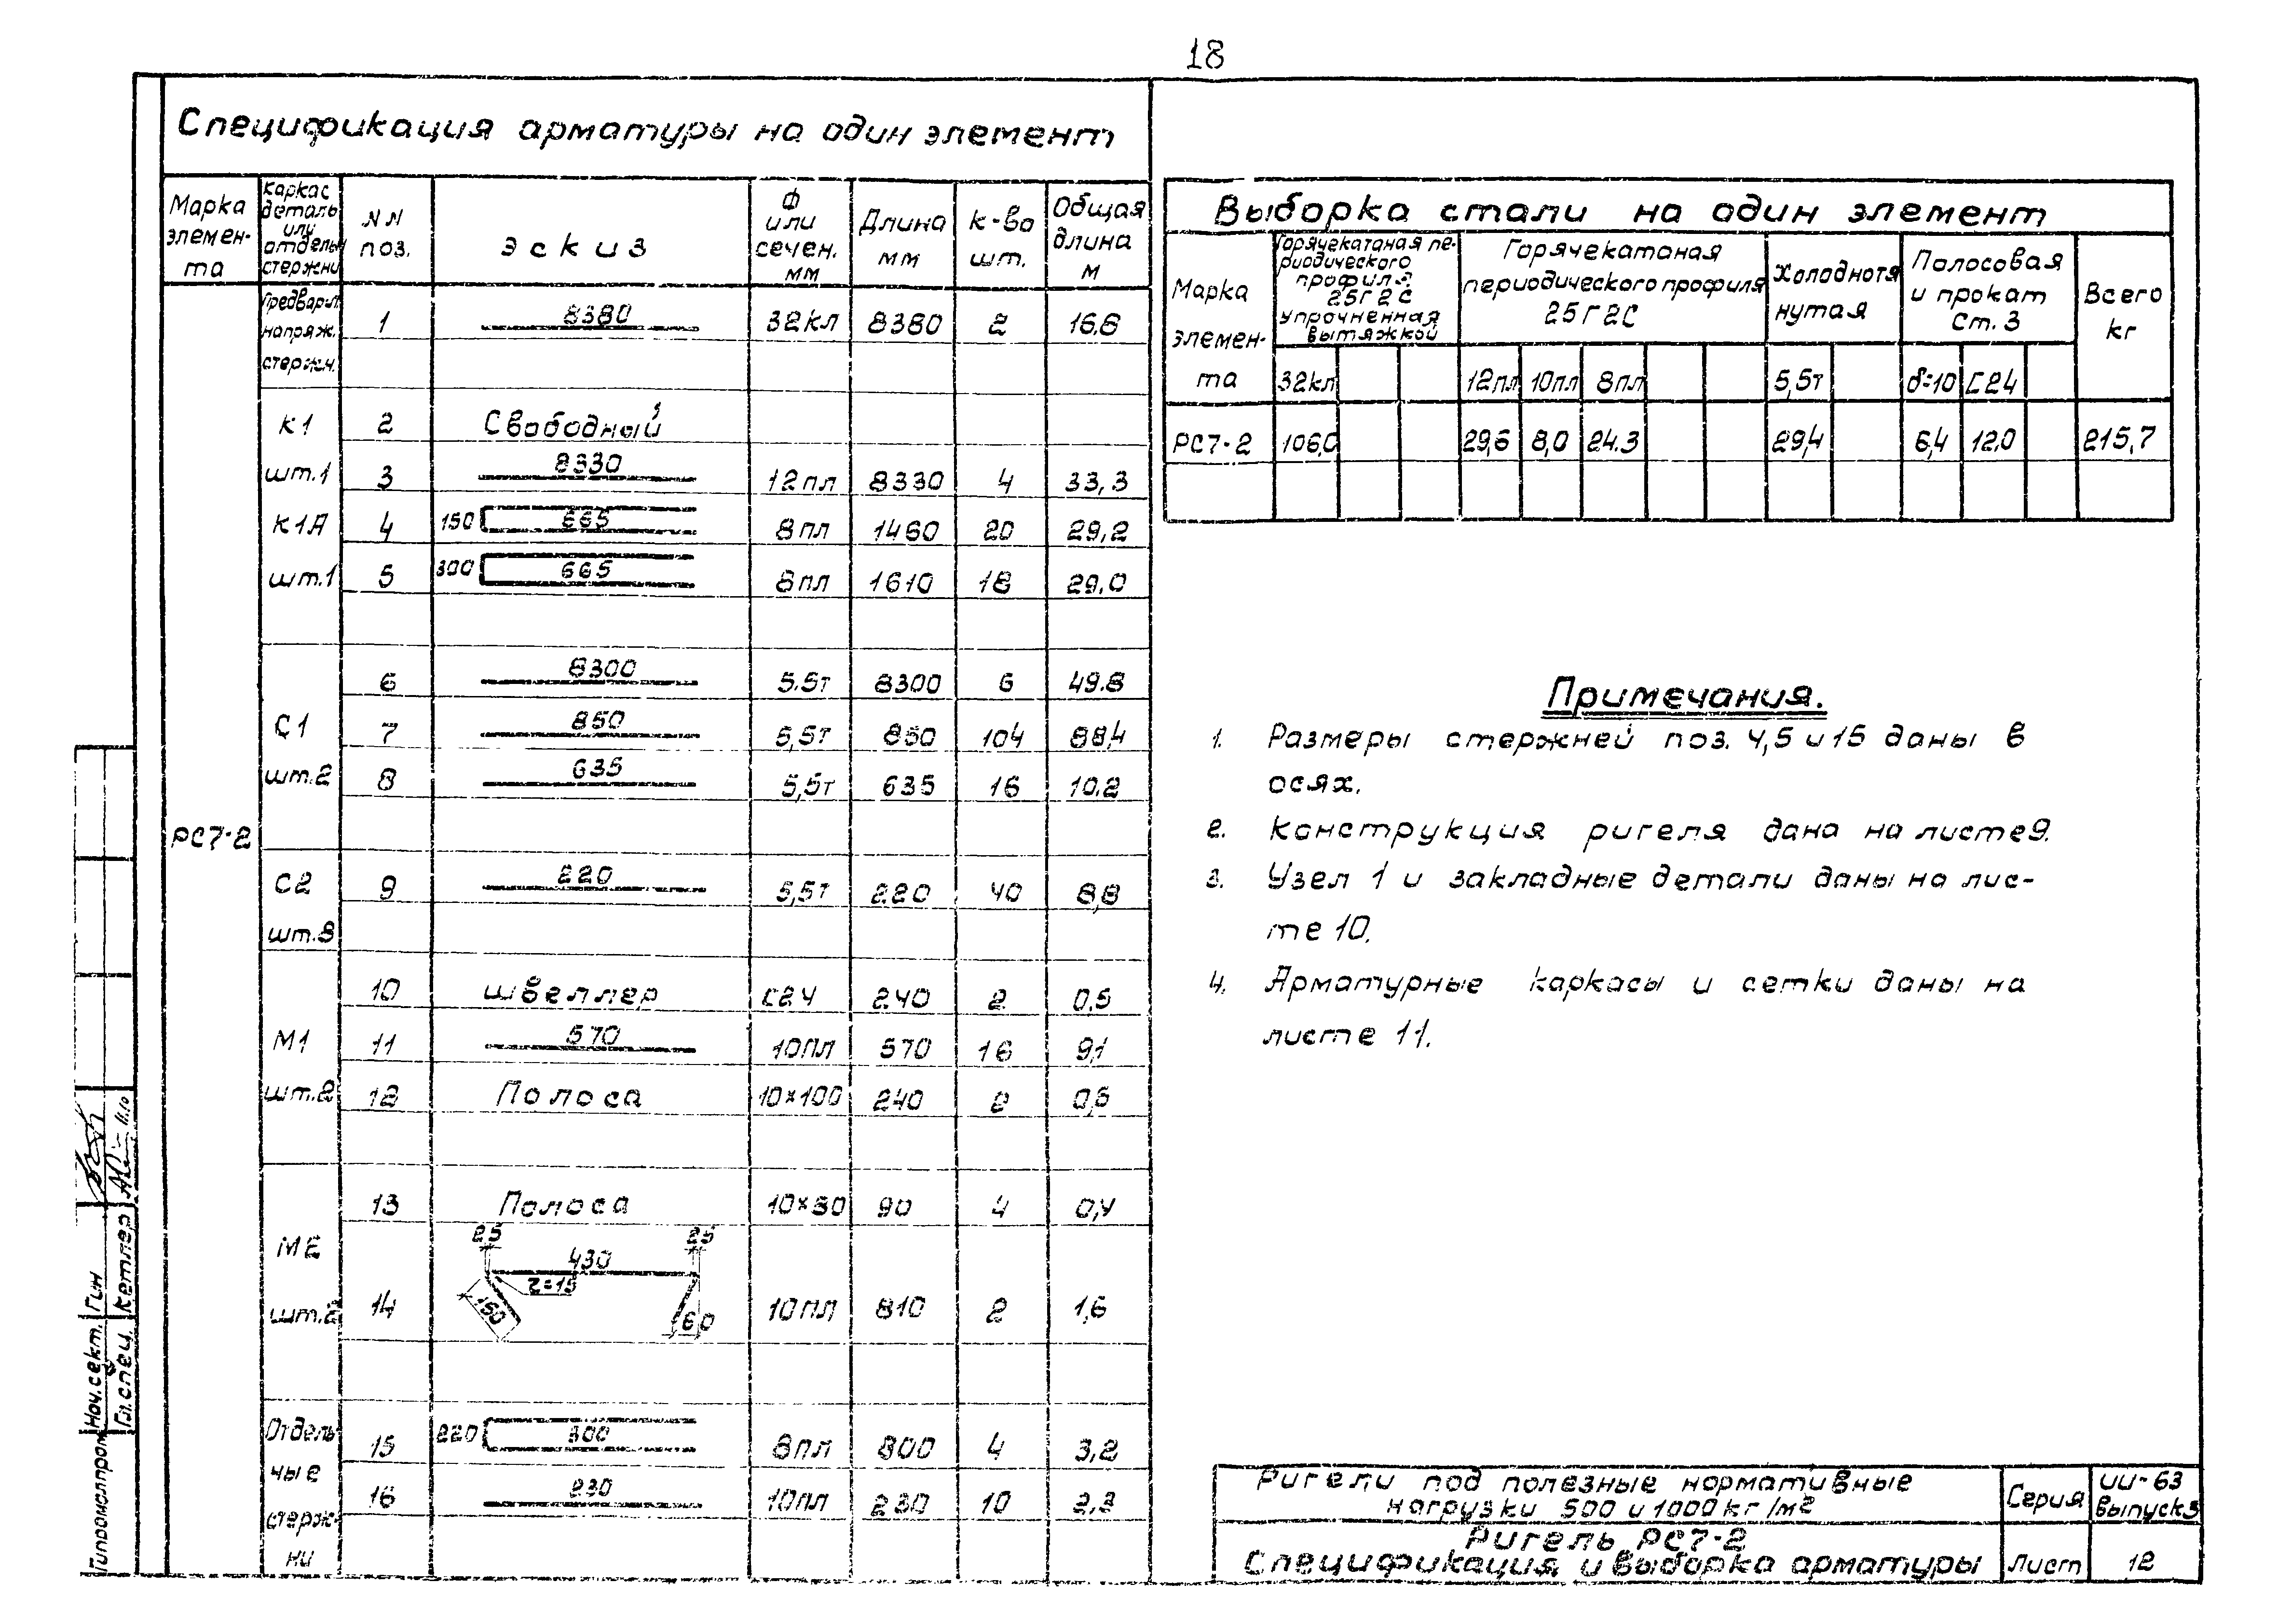 18
Спецификация арматуры на один элемент
Марка элемен-та | Каркас деталь или отдельн стержни | NN поз. | эскиз | Ф или сечен. мм | Длина мм | к-во шт. | Общая длина м
РС7-2
Предвар.н напряж. стержн. | 1 | 8380 | 32кл | 8380 | 2 | 16.6
К1 | 2 | Свободный
шт.1 | 3 | 8330 | 12пл | 8330 | 4 | 33,3
К1А | 4 | 150 665 | 8пл | 1460 | 20 | 29,2
шт.1 | 5 | 300 665 | 8пл | 1610 | 18 | 29.0
6 | 8300 | 5.5т | 8300 | 6 | 49.8
С1 | 7 | 850 | 5,5т | 850 | 104 | 88,4
шт.2 | 8 | 635 | 5,5т | 635 | 16 | 10.2
С2 | 9 | 220 | 5,5т | 220 | 40 | 8,8
шт.8
10 | швеллер | С24 | 240 | 2 | 0.5
М1 | 11 | 570 | 10пл | 570 | 16 | 9,1
шт.2 | 12 | Полоса | 10×100 | 240 | 2 | 0,5
13 | Полоса | 10×80 | 90 | 4 | 0,4
М2
25 25
430
r=15
150 60
шт.2 | 14 | 10пл | 810 | 2 | 1,6
Отдель | 15 | 220 300 | 8пл | 800 | 4 | 3,2
ные | 16 | 230 | 10пл | 230 | 10 | 2,3
стерж-
ни
Выборка стали на один элемент
Марка элемен-та | Горячекатаная пе-риодического профиля 25Г2С упрочненная вытяжкой | Горячекатаная периодического профиля 25Г2С | Холоднотя нутая | Полосовая и прокат Ст. 3 | Всего кг
32кл | 12пл | 10пл | 8пл | 5,5т | δ=10 | С24
РС7-2 | 106,0 | 29,6 | 8,0 | 24.3 | 29,4 | 6,4 | 12.0 | 215,7
Примечания.
1. Размеры стержней поз. 4,5 и 15 даны в
осях.
2. Конструкция ригеля дана на листе 9.
3. Узел 1 и закладные детали даны на лис-
те 10.
4. Арматурные каркасы и сетки даны на
листе 11.
Ригели под полезные нормативные
нагрузки 500 и 1000 кг/м2
Серия
ИИ-63
Выпуск 3
Ригель РС7-2
Спецификация и выборка арматуры
Лист
12
Гипромыслпром
Нач.сект. Гин
Гл.спец. Кетлер